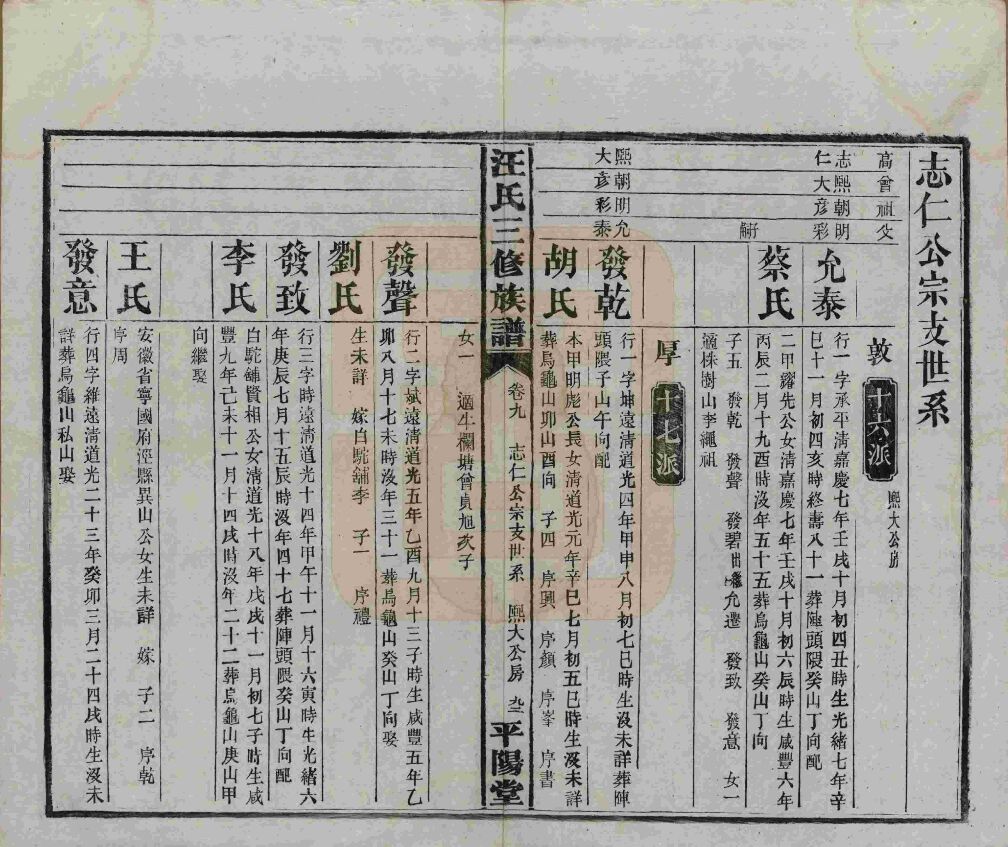 志仁公宗支世系
高曾祖父
敦 十六派 熙大公房
志熙朝明
仁大彦彩
允泰
行一字承平清嘉慶七年壬戌十月初四丑時生光緒七年辛
巳十一月初四亥時終壽八十一葬陣頭隈癸山丁向配
蔡氏
二甲躍先公女清嘉慶七年壬戌十月初六辰時生咸豐六年
丙辰二月十九酉時沒年五十五葬烏龜山癸山丁向
嗣
子五 發乾 發聲 發碧出繼允遷 發致 發意 女一
適株樹山李繩祖
厚 十七派
熙朝明允
大彦彩泰
發乾
行一字坤遠清道光四年甲申八月初七巳時生沒未詳葬陣
頭隈子山午向配
胡氏
本甲明彪公長女清道光元年辛巳七月初五巳時生沒未詳
葬烏龜山卯山酉向 子四 序興 序顏 序峯 序書
汪氏三修族譜 卷九 志仁公宗支世系 熙大公房 平陽堂
女一 適牛欄塘曾貞旭次子
發聲
行二字斌遠清道光五年乙酉九月十三子時生咸豐五年乙
卯八月十七未時沒年三十一葬烏龜山癸山丁向娶
劉氏
生未詳 嫁白駝舖李 子一 序禮
發致
行三字時遠清道光十四年甲午十一月十六寅時生光緒六
年庚辰七月十五辰時沒年四十七葬陣頭隈癸山丁向配
李氏
白駝舖賢相公女清道光十八年戊戌十一月初七子時生咸
豐九年己未十一月十四戌時沒年二十二葬烏龜山庚山甲
向繼娶
王氏
安徽省寧國府涇縣異山公女生未詳 嫁 子二 序乾
序周
發意
行四字維遠清道光二十三年癸卯三月二十四戌時生沒未
詳葬烏龜山私山娶